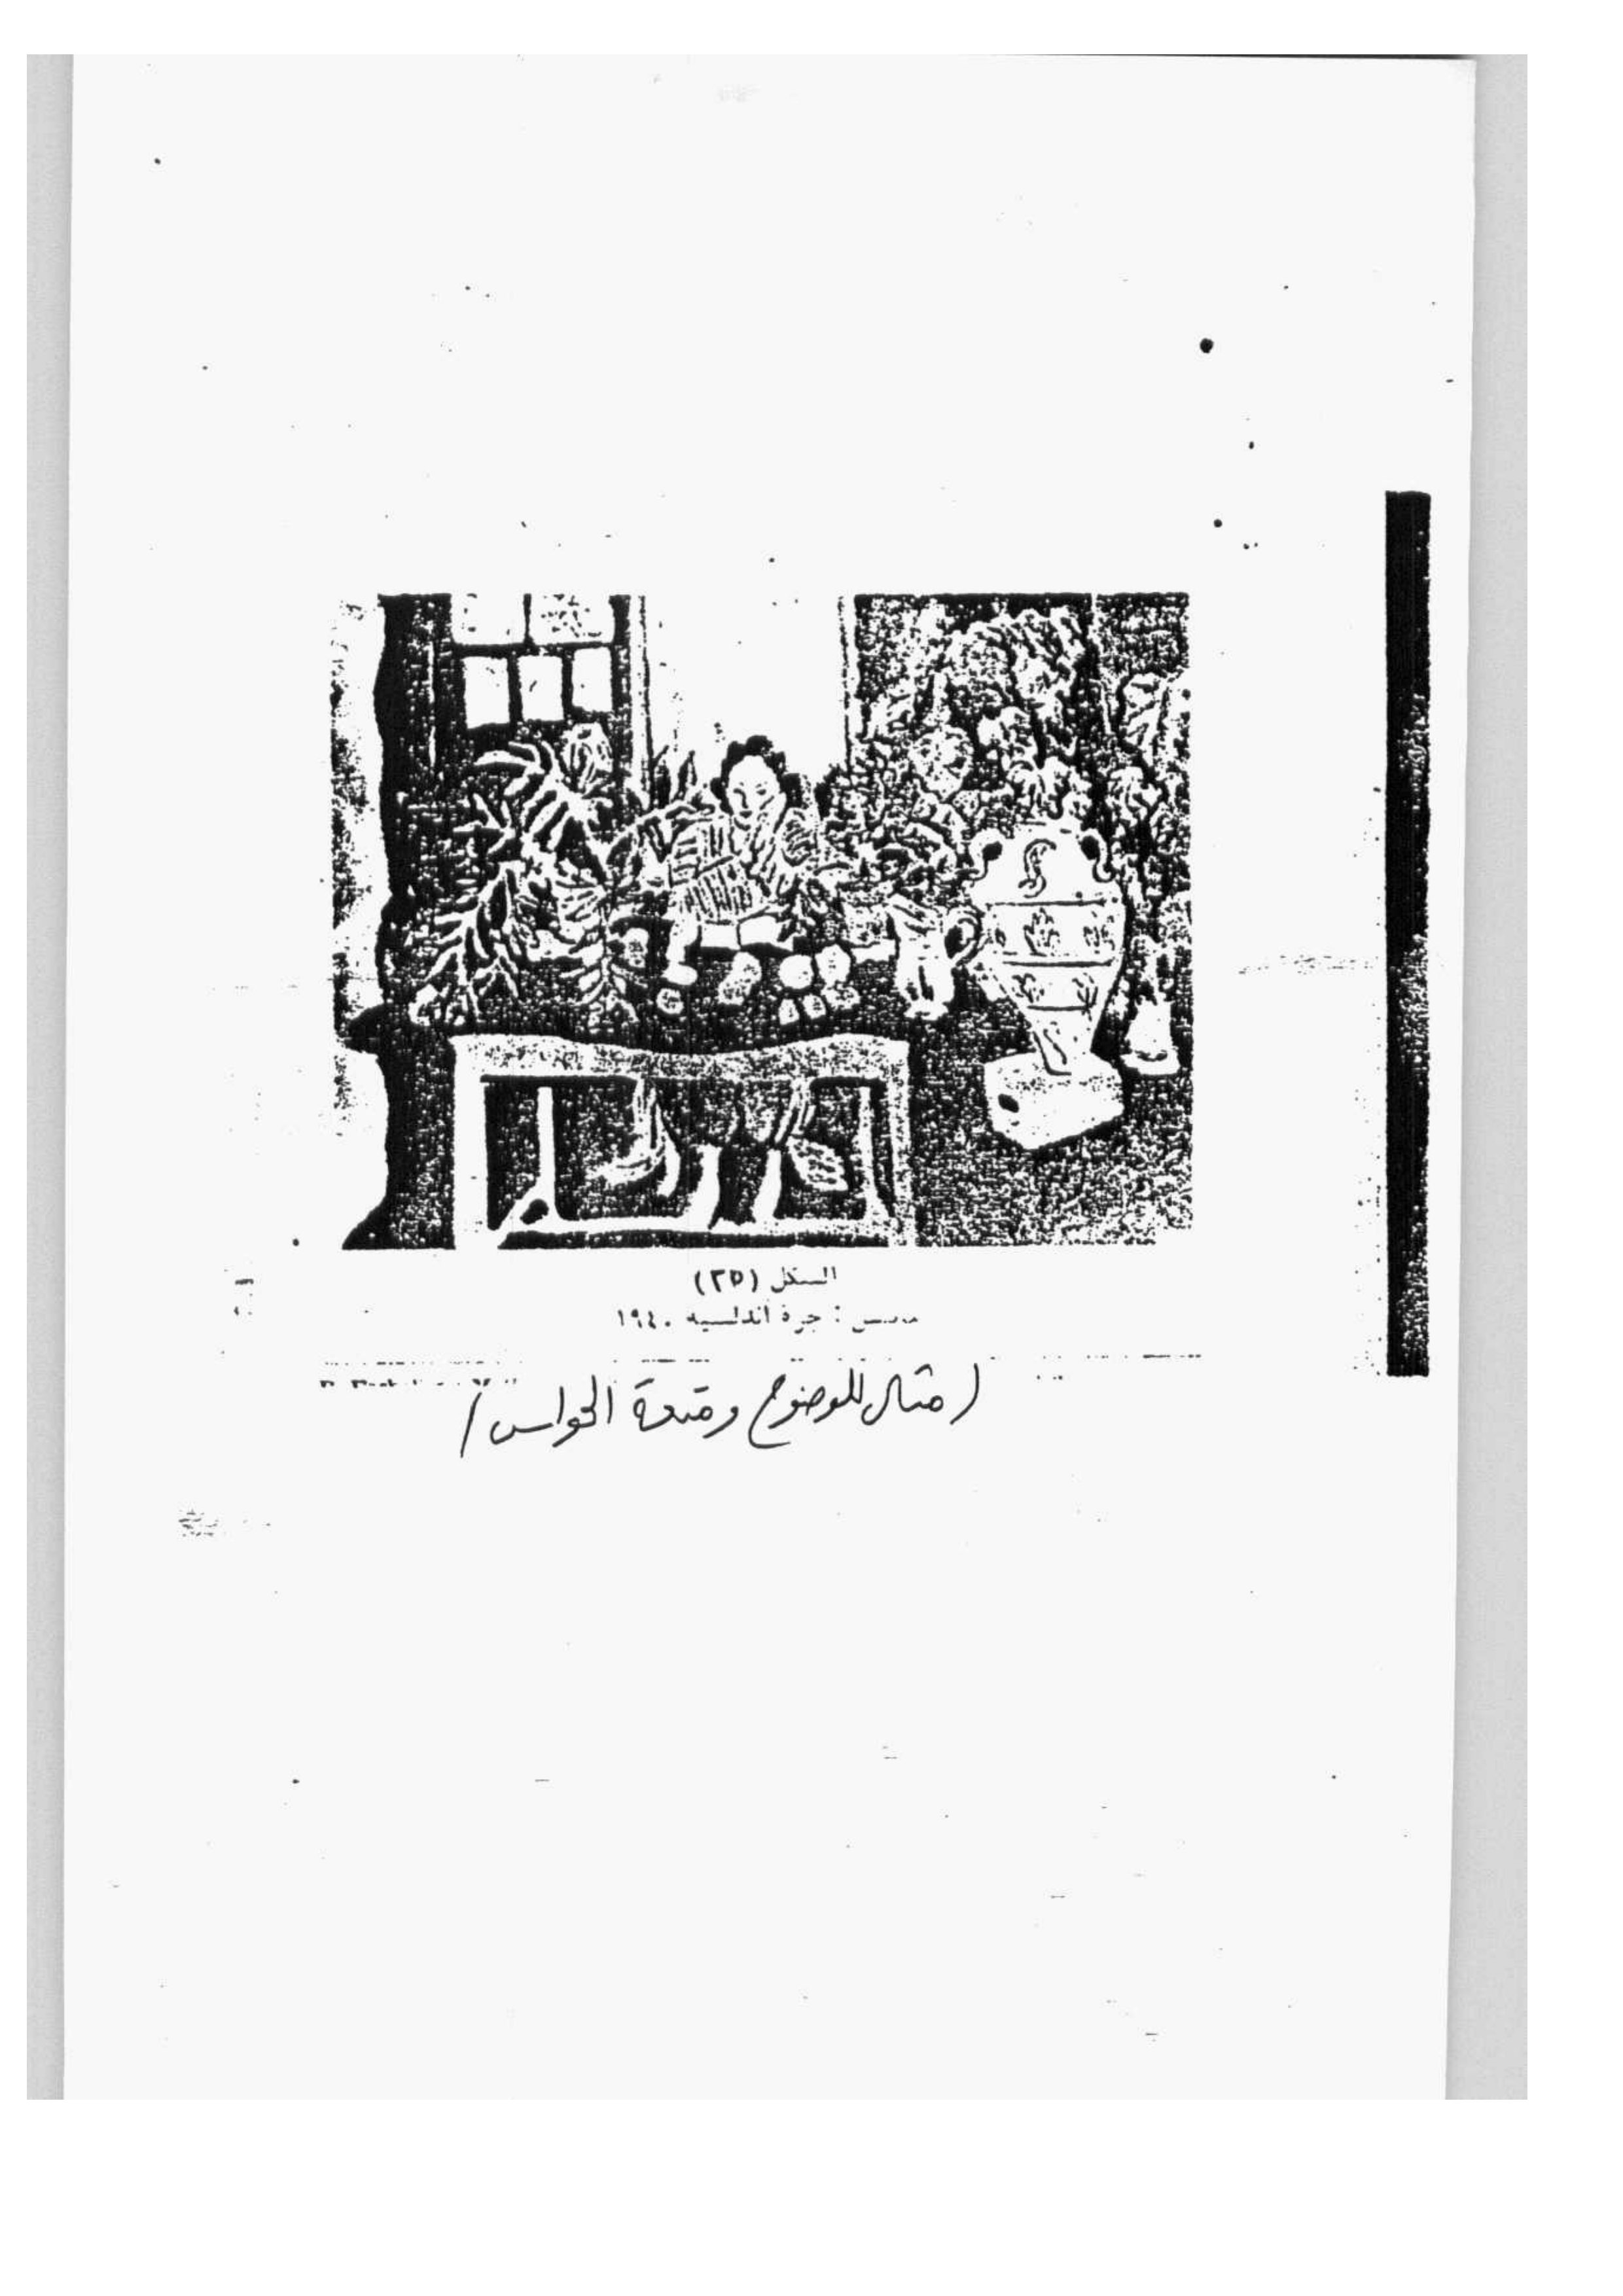 الشكل (٢٥)
ماتيس : جرة أندلسية ١٩٤٠
(مثال للوضوح ومتعة الحواس)